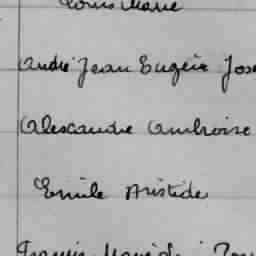 Louis Marie
André Jean Eugène Jose
Alexandre Ambroise
Emile Aristide
Francis